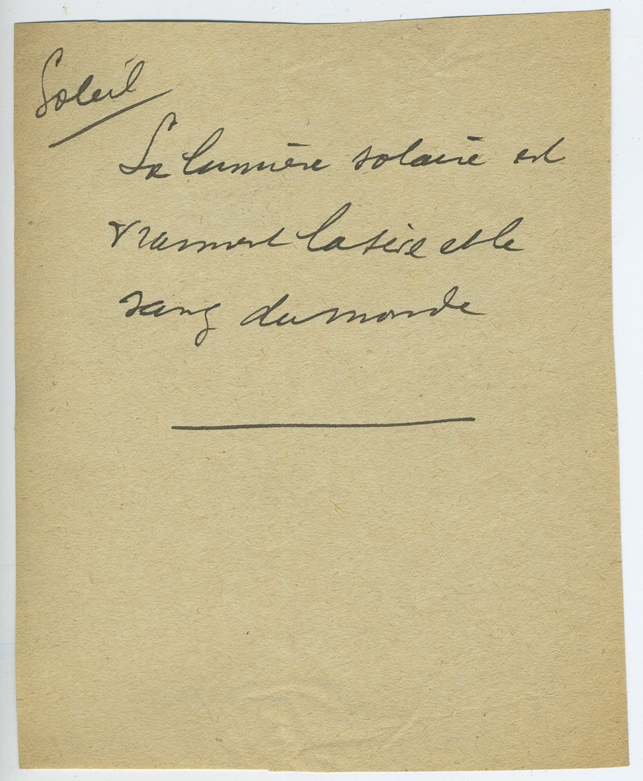 Soleil
La lumière solaire est
vraiment la sève et le
sang du monde